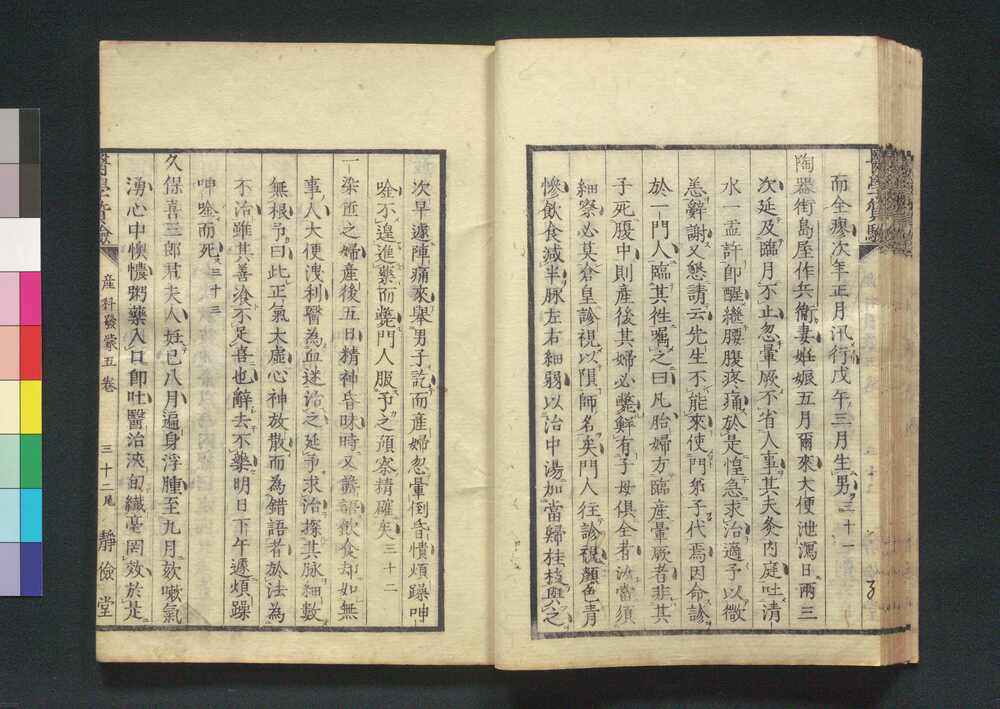 而全瘳次年正月汛行戊午三月生男三十一
陶器街島屋作兵衛妻妊娠五月爾來大便泄瀉日兩三
次延及臨月不止忽暈厥不省人事其夫灸內庭吐清
水一盂許即醒繼腰腹疼痛於是惶急求治適予以微
恙辭謝又懇請云先生不能來使門弟子代焉因命診
於一門人臨其徃囑之曰凡胎婦方臨產暈厥者非其
子死腹中則產後其婦必斃鮮有子母俱全者汝當須
細察必莫倉皇診視以隕師名矣門人往診視顏色青
慘飲食減半脉左右細弱以治中湯加當歸桂枝與之
次早遽陣痛來舉男子訖而產婦忽暈倒昏憒煩躁呻
唫不遑進藥而斃門人服予之預察精確矣三十二
一染匠之婦產後五日精神昏昧時又譫語飲食却如無
事人大便洩利醫為血迷治之延予求治探其脉細數
無根予曰此正氣太虛心神放散而為錯語者於法為
不治雖其善飡不足喜也辭去不藥明日下午遽煩躁
呻唫而死三十三
久保喜三郎君夫人妊已八月遍身浮腫至九月咳嗽氣
湧心中懊憹粥藥入口即吐醫治浹旬纖毫罔效於是
產科發蒙五卷
三十二尾
靜儉堂